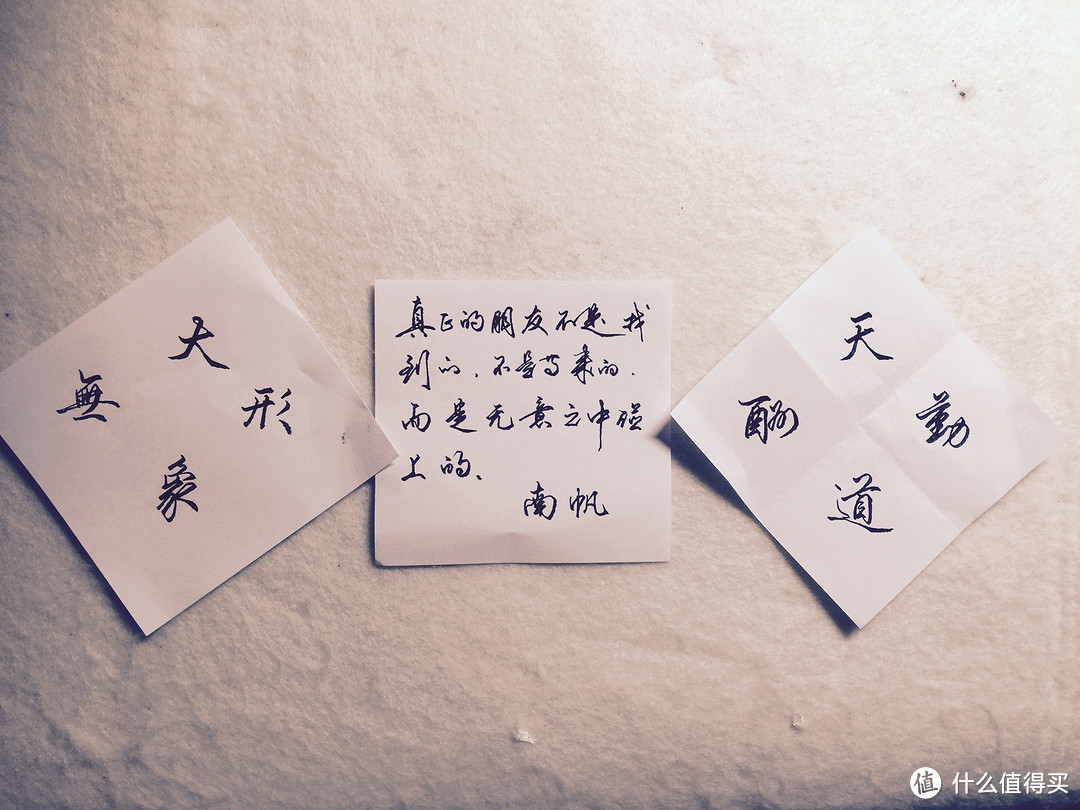 大象無形
真正的朋友不是找
到的，不是等来的，
而是无意之中碰
上的、
南帆
天道酬勤
值 什么值得买